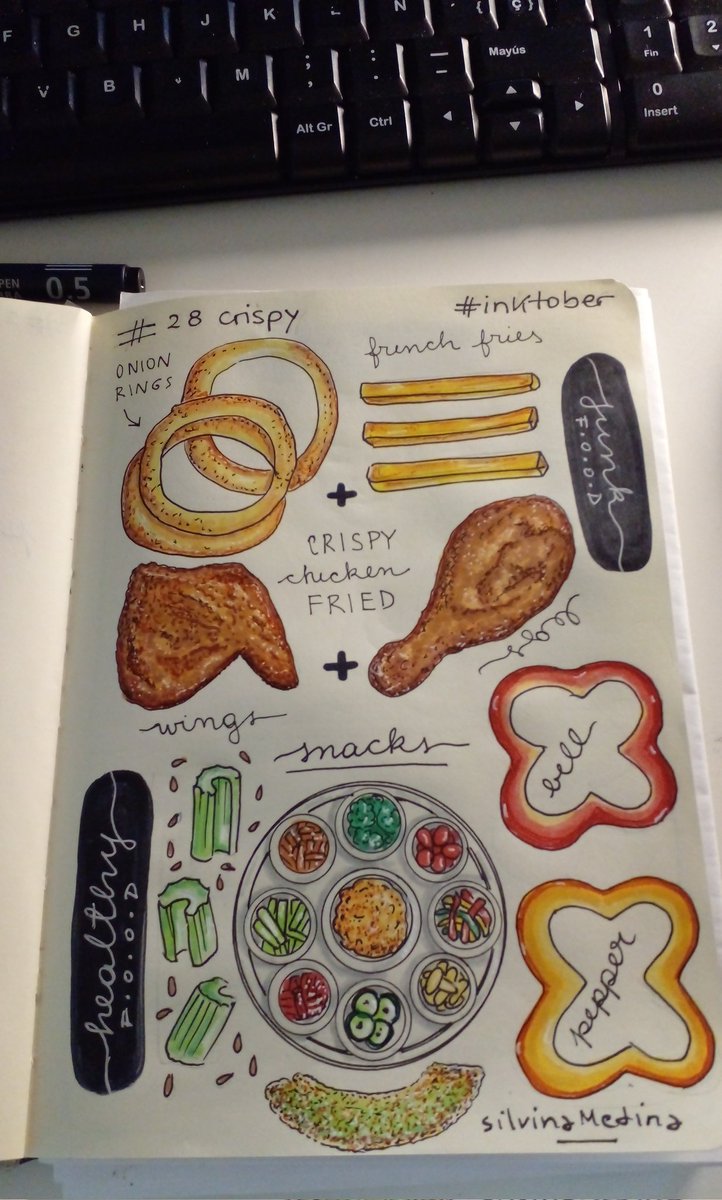 F G H J K L N { Ç }
V B M ; , : . — - Mayús 1 Fin 2
Alt Gr Ctrl 0 Insert
PEN 0.5
# 28 crispy
#inktober
ONION
RINGS
french fries
junk
F.O.O.D
CRISPY
chicken
FRIED
legs
wings
snacks
bell
healthy
F.O.O.D
pepper
silvinaMedina